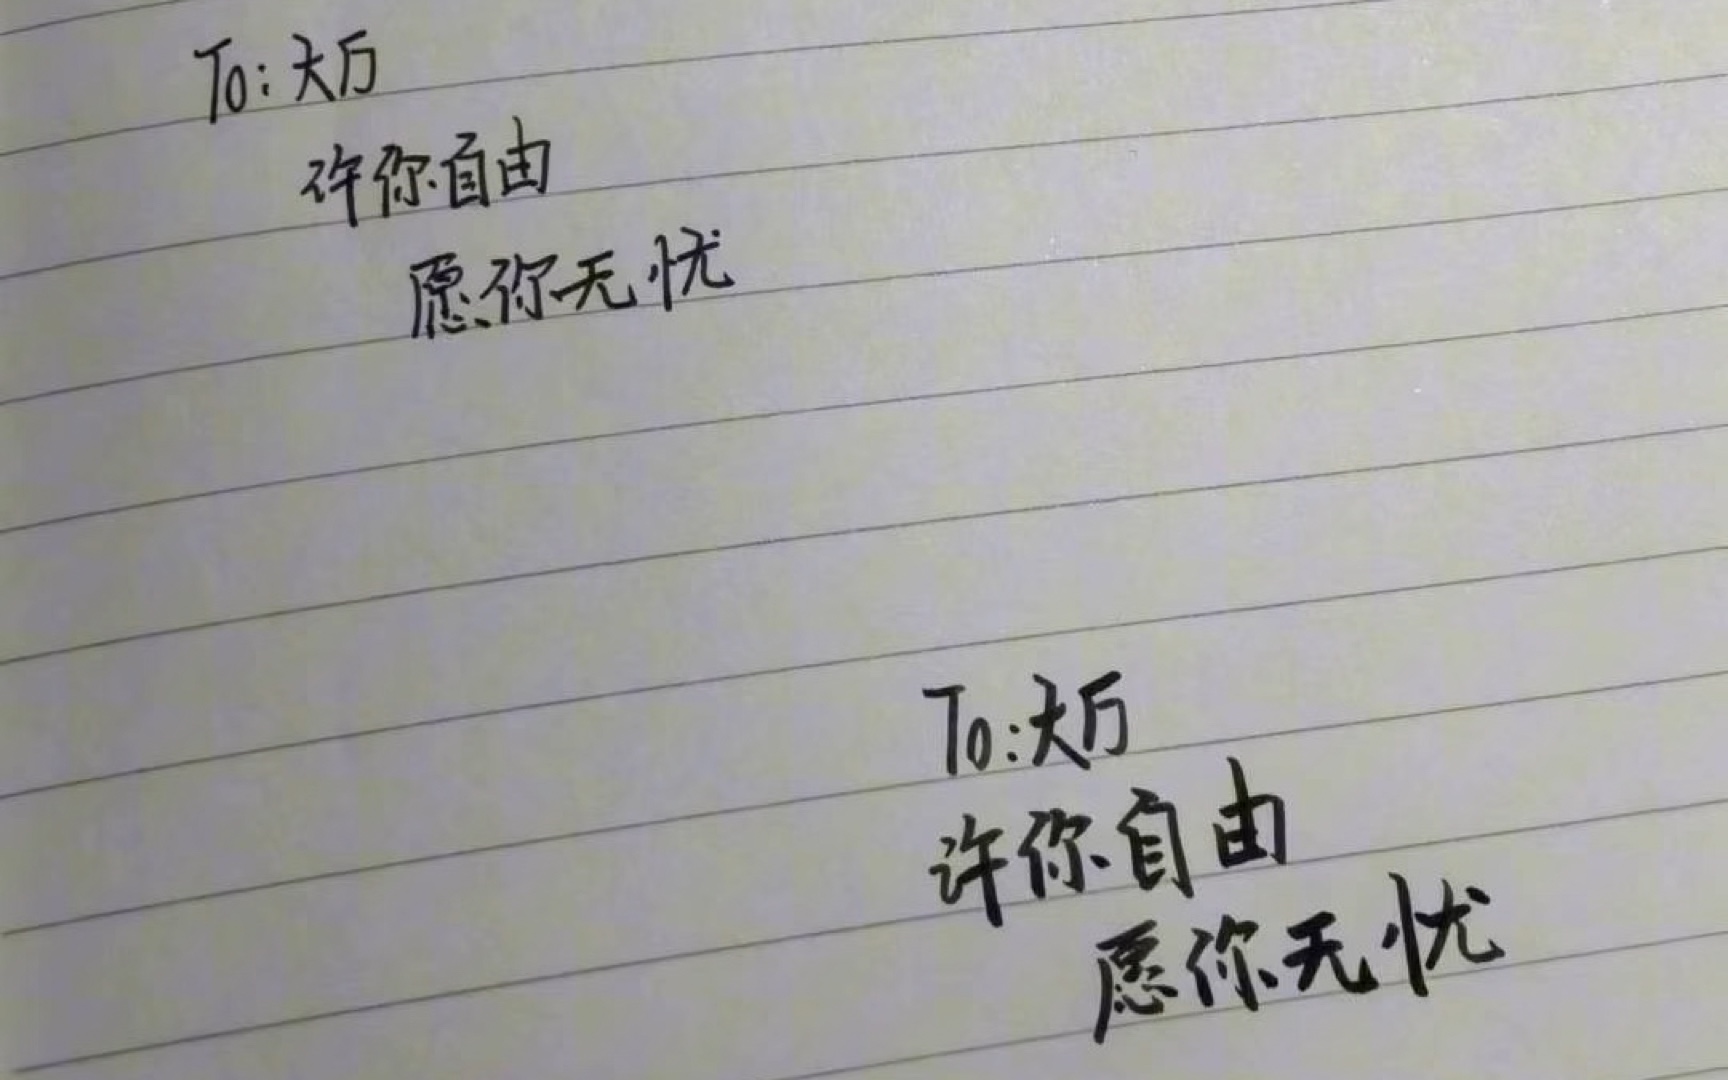 To:大厅
许你自由
愿你无忧
To:大厅
许你自由
愿你无忧